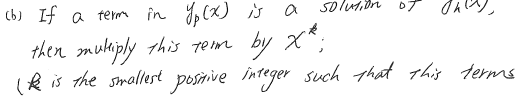 (b) If a term in yp(x) is a solution of yh(x),
then multiply this term by x^k;
(k is the smallest positive integer such that this terms